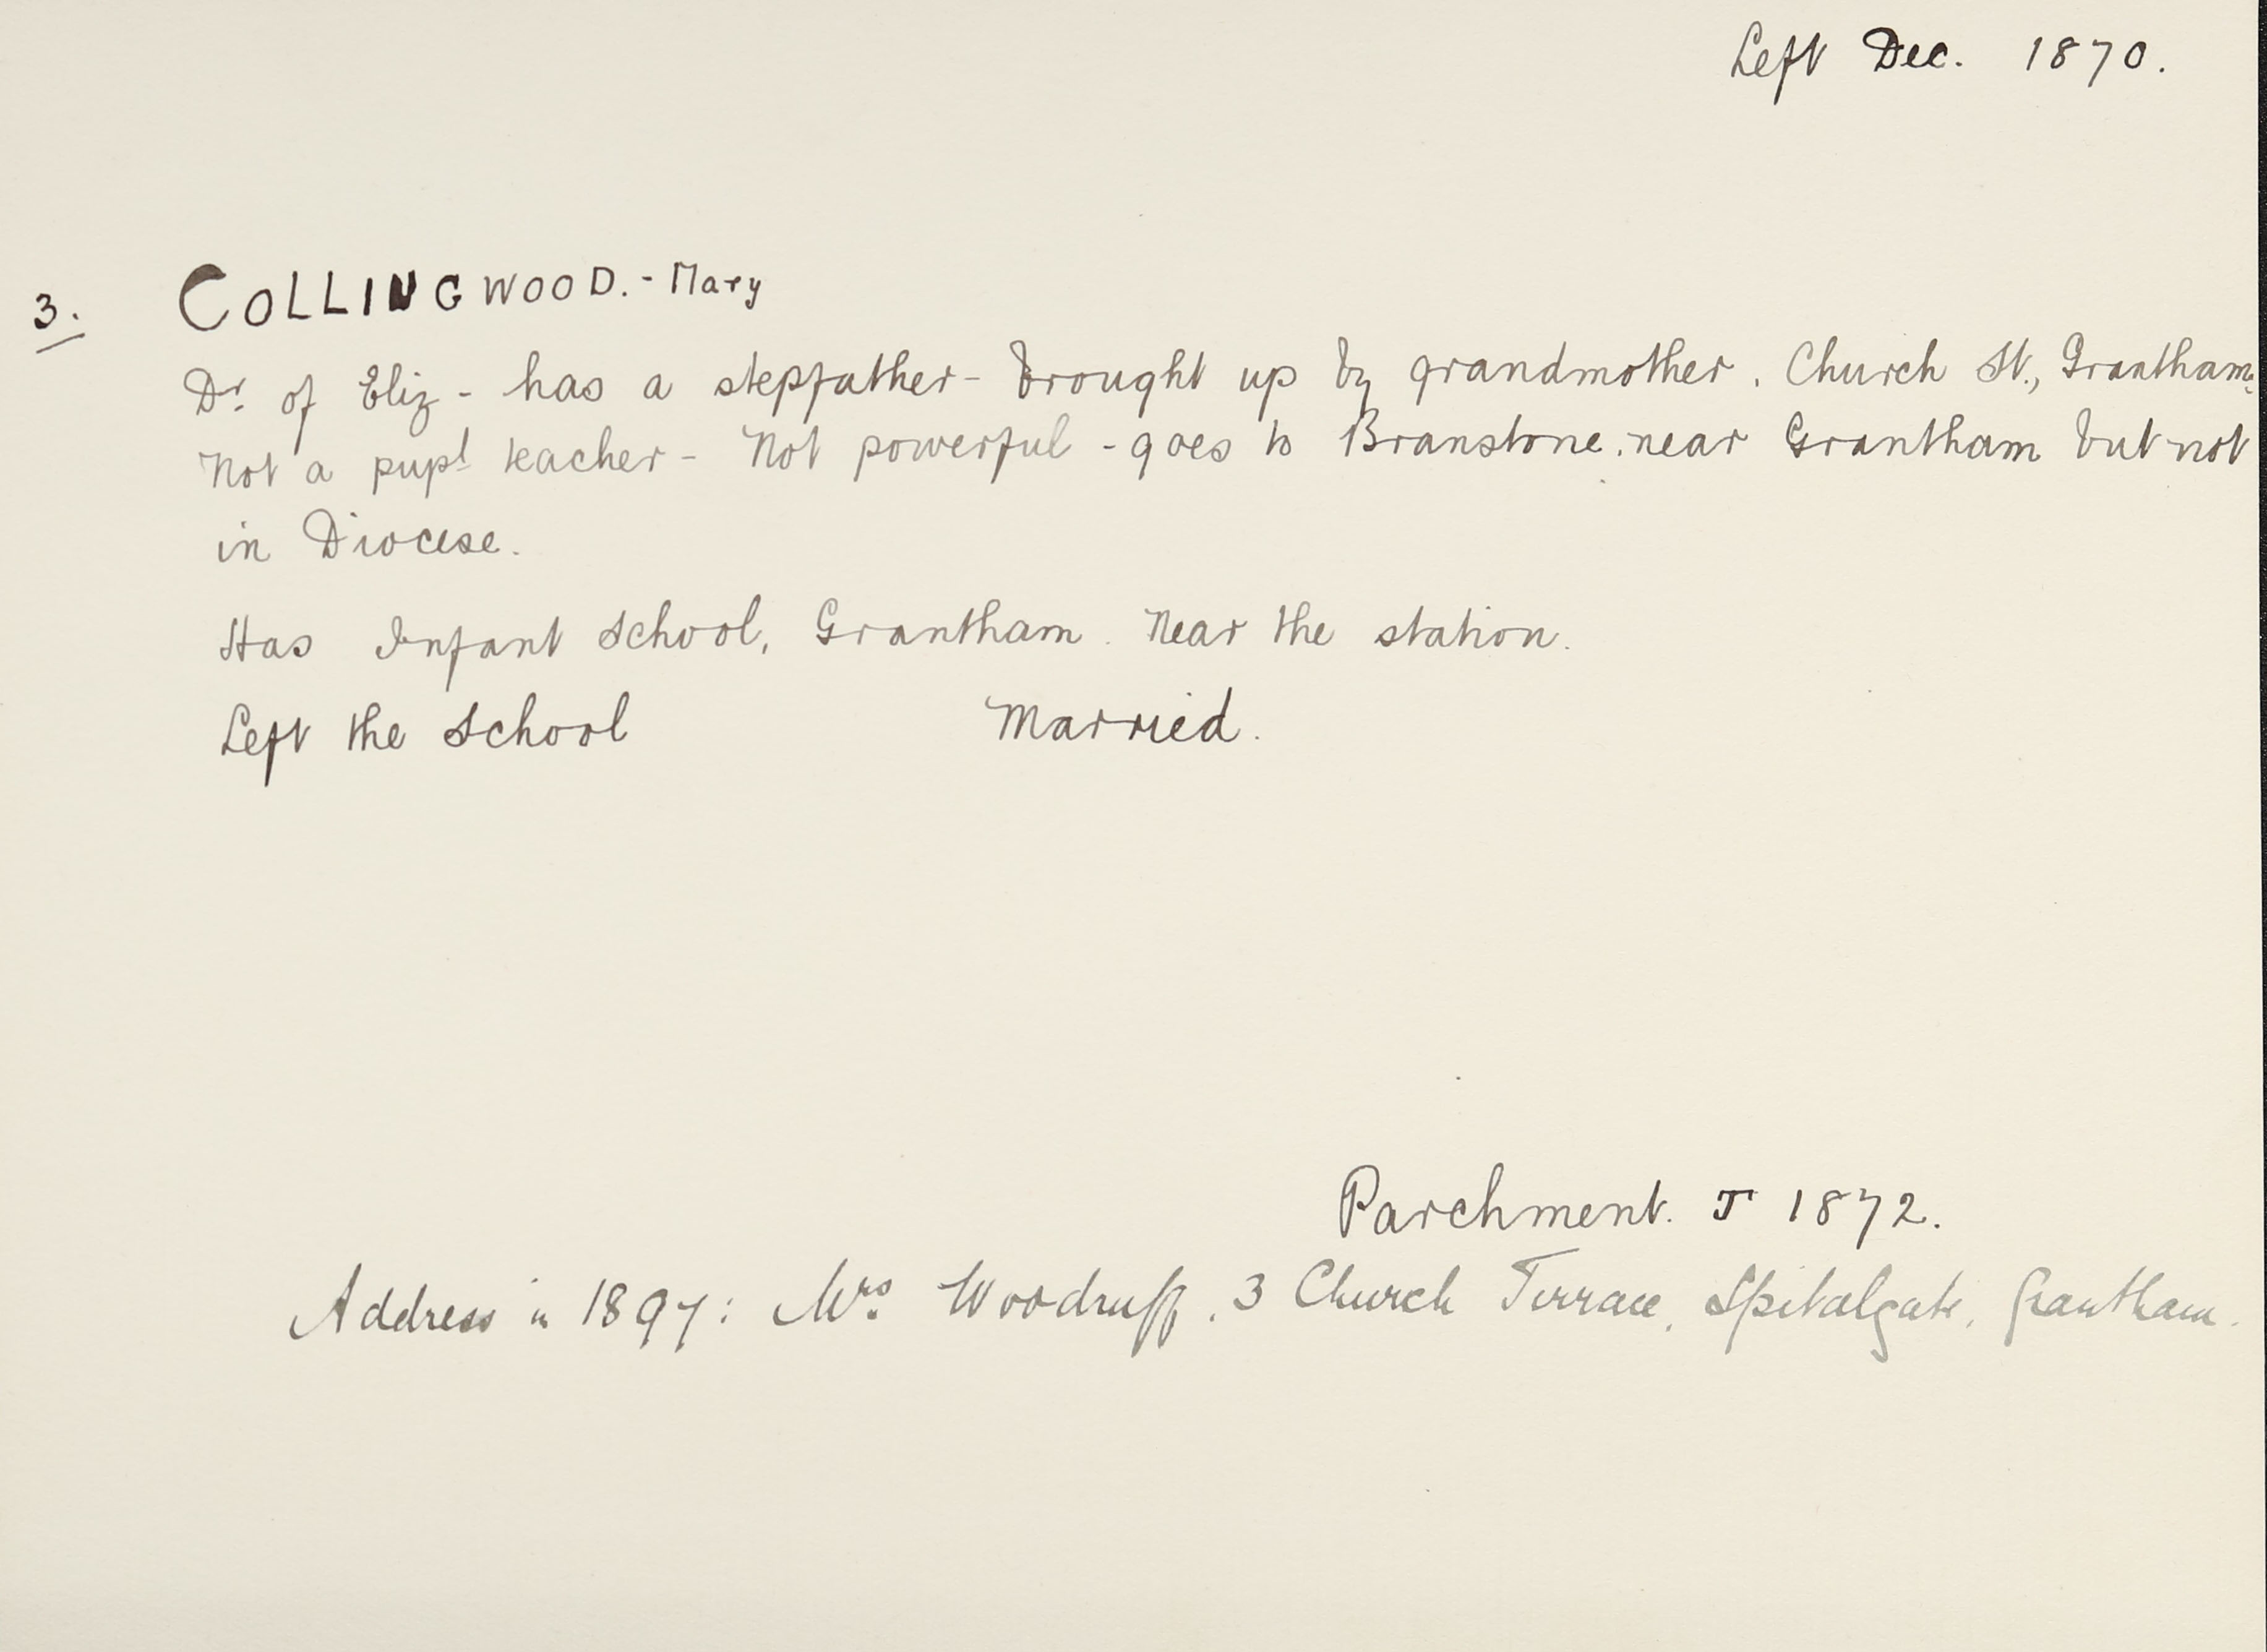 Left Dec. 1870.
3. COLLINGWOOD. - Mary
Dr. of Eliz - has a stepfather - brought up by grandmother. Church St., Grantham.
Not a pupl teacher - Not powerful - goes to Branstone. near Grantham but not
in Diocese.
Has Infant School, Grantham. Near the station.
Left the School Married.
Parchment. T 1872.
Address in 1897: Mrs. Woodruff, 3 Church Terrace, Spitalgate, Grantham.